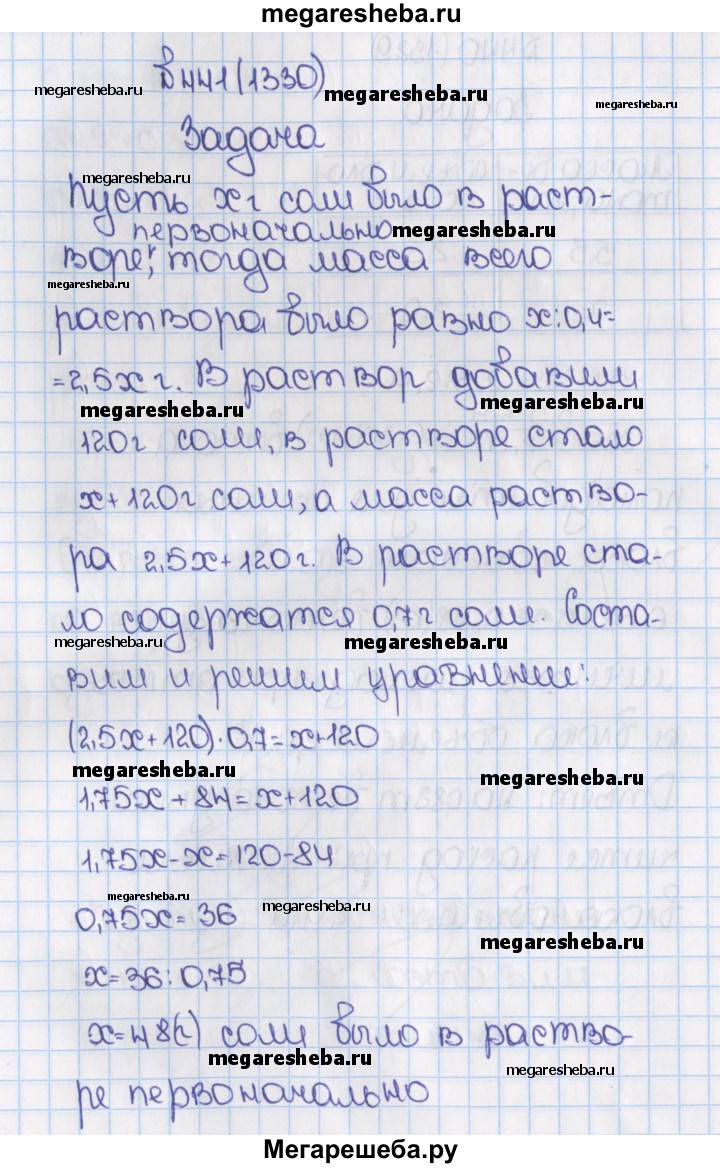 megaresheba.ru
№441(1330)
megaresheba.ru
megaresheba.ru
megaresheba.ru
Задача
megaresheba.ru
Пусть x г соли было в раст-
первоначально
megaresheba.ru
воре, тогда масса всего
megaresheba.ru
раствора было равно x:0,4=
=2,5x г. В раствор добавили
megaresheba.ru
megaresheba.ru
120г соли, в растворе стало
x+120г соли, а масса раство-
ра 2,5x+120г. В растворе ста-
ло содержатся 0,7г соли. Соста-
megaresheba.ru
megaresheba.ru
вим и решим уравнение:
(2,5x+120)·0,7=x+120
megaresheba.ru
megaresheba.ru
1,75x+84=x+120
1,75x-x=120-84
megaresheba.ru
megaresheba.ru
0,75x=36
megaresheba.ru
x=36:0,75
x=48(г) соли было в раство-
megaresheba.ru
megaresheba.ru
ре первоначально
Мегарешеба.ру